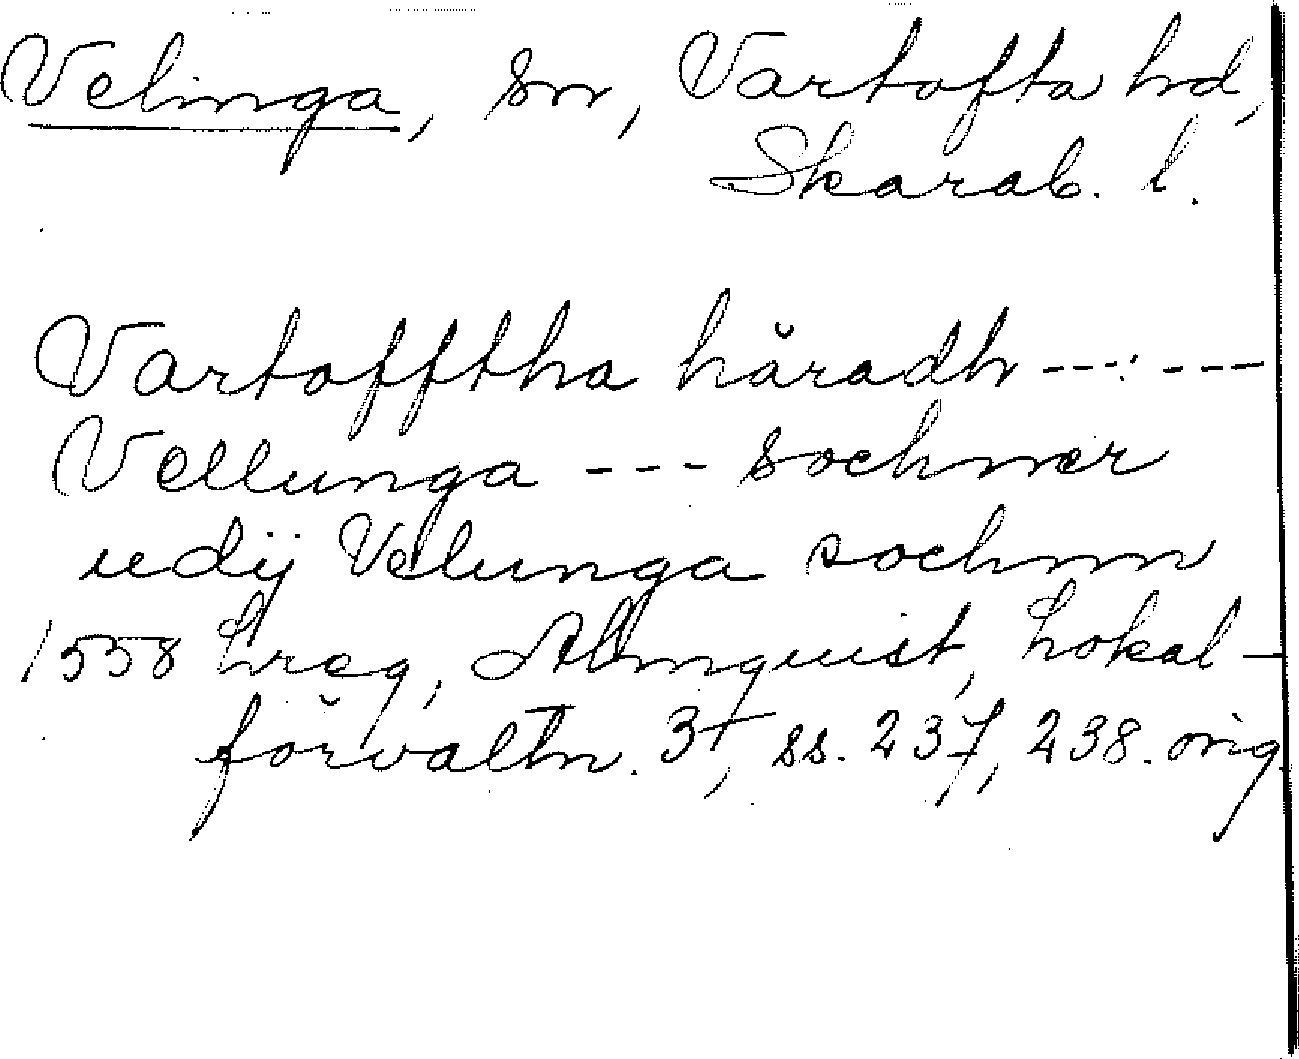 Velinga, sn, Vartofta hd,
Skarab. l.
Vartofftha häradh ---:---
Vellunga --- sochner
udij Velunga sochnn
1558 Lreg, Almquist, Lokal-
förvaltn. 3, ss. 237, 238. orig.